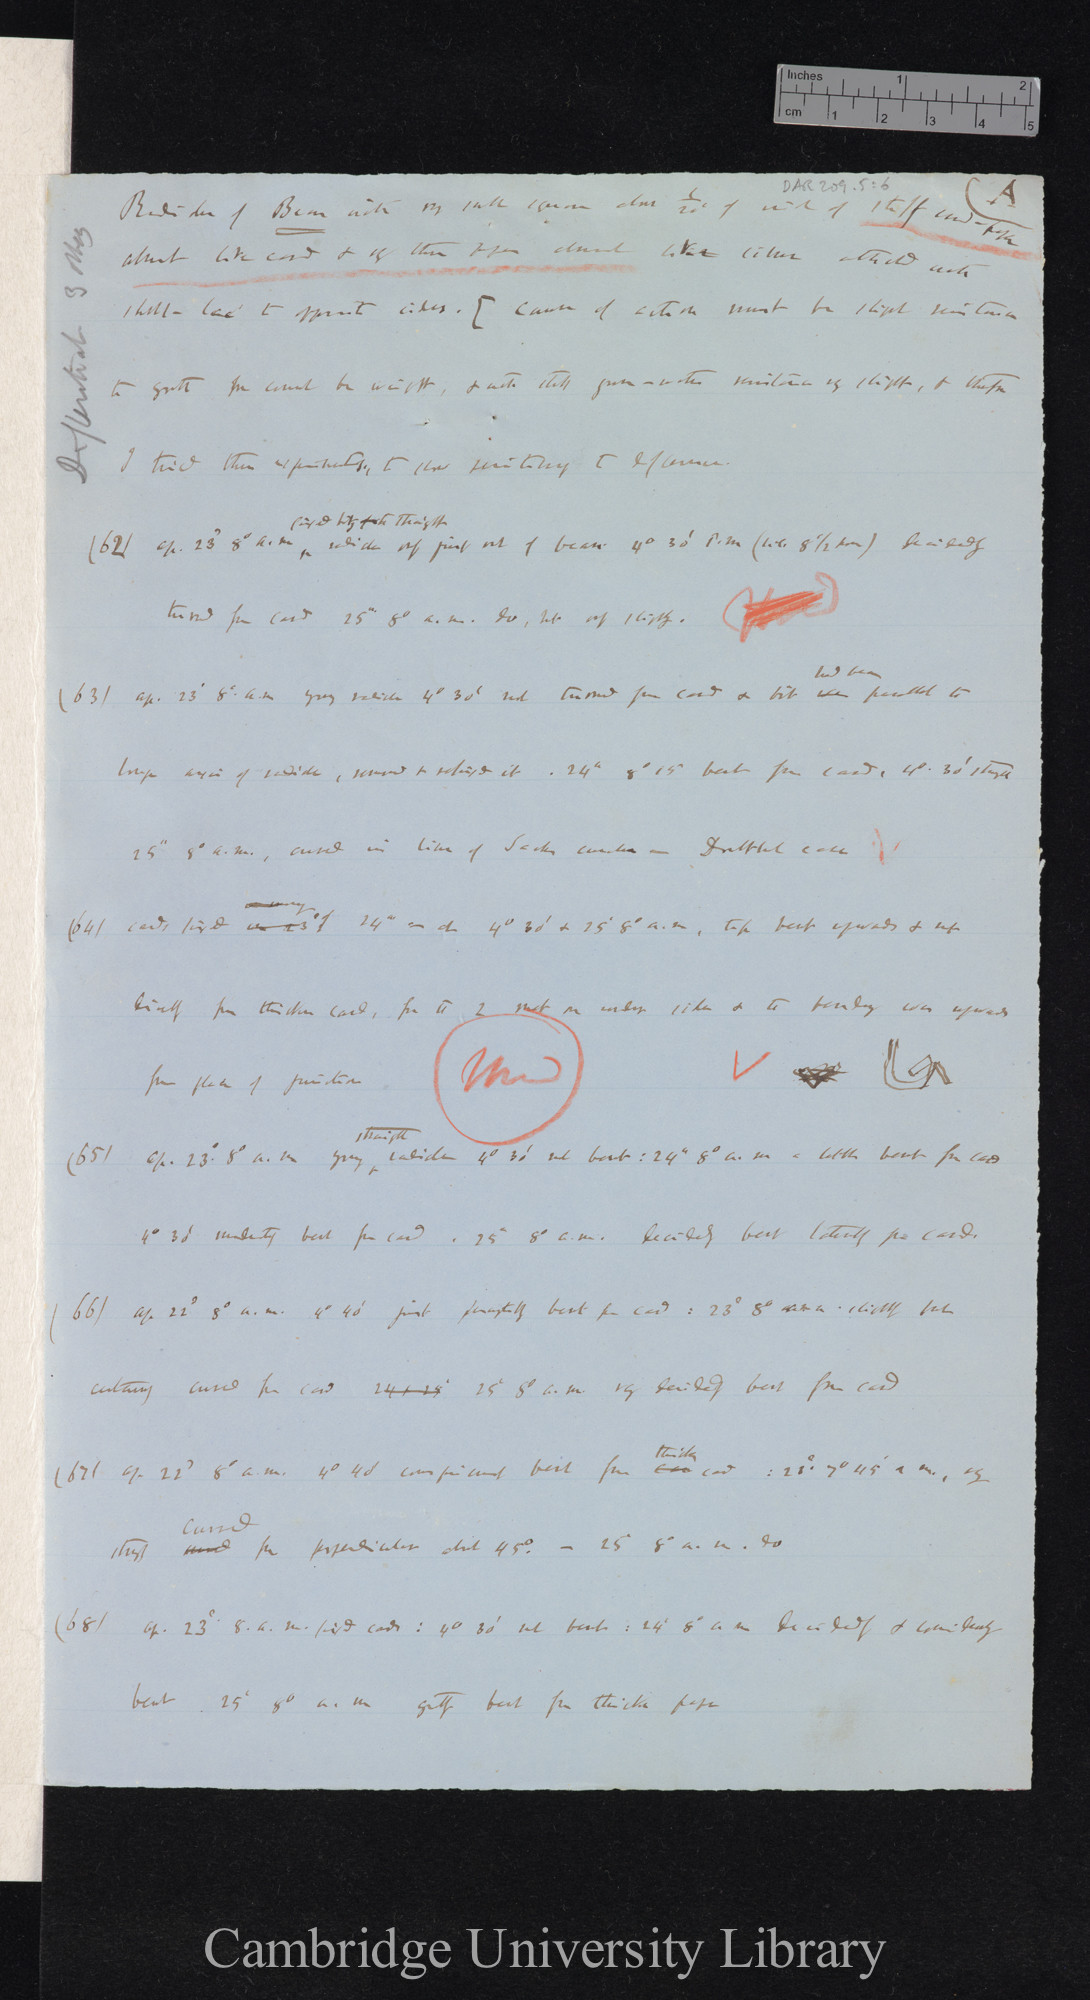 Inches 1 2
cm 1 2 3 4 5
DAR 209.5:6
A
Differential 3 May
Radicles of Bean with very small square about 1/20 of inch of stiff card-
almost like card & very thin paper almost like either attached with
shell-lac to opposite sides. [ Cause of action must be slight resistance
to growth for cannot be weight, & with still gum-water resistance very slight, & therefore
I tried these experiments, to show sensitivity to difference.
(62) ap. 23d 8o a.m radicle only just out of bean 4o 30' P.m (i.e. 8 1/2 hours) decidedly
turned from card 25th 8o a.m. do, but only slightly.
(63) ap. 23d 8o a.m young radicle 4o 30' not turned from card & bit had been parallel to
longer axis of radicle, removed & refixed it. 24th 8o 15' bent from card, 4o 30' straight
25th 8o a.m., curved in line of Sachs curvature
(64) cards fixed 24th 4o 30' & 25th 8o a.m, tip bent upwards & not
directly from thicker card, for the 2 not on under sides & the tendency was upwards
from plane of junction
Used
(65) ap. 23d. 8o a.m young straight radicle 4o 30' not bent: 24th 8o a.m a little bent from card
4o 30' moderately bent from card. 25th 8o a.m. decidedly bent laterally from card.
(66) ap. 22d 8o a.m. 4o 40' just perceptibly bent from card: 23d 8o a.m. slightly but
certainly curved from card 24 & 25 25th 8o a.m. very decidedly bent from card
(67) ap. 22d 8o a.m. 4o 40' conspicuously bent from thick card: 23d. 7o 45' a m., very
strongly curved from perpendicular about 45o. — 25th 8o a.m. do
(68) ap. 23d. 8. a.m. fixed cards: 4o 30' not bent: 24th 8o a m decidedly & considerably
bent 25th 8o a.m greatly bent from thicker paper
Cambridge University Library